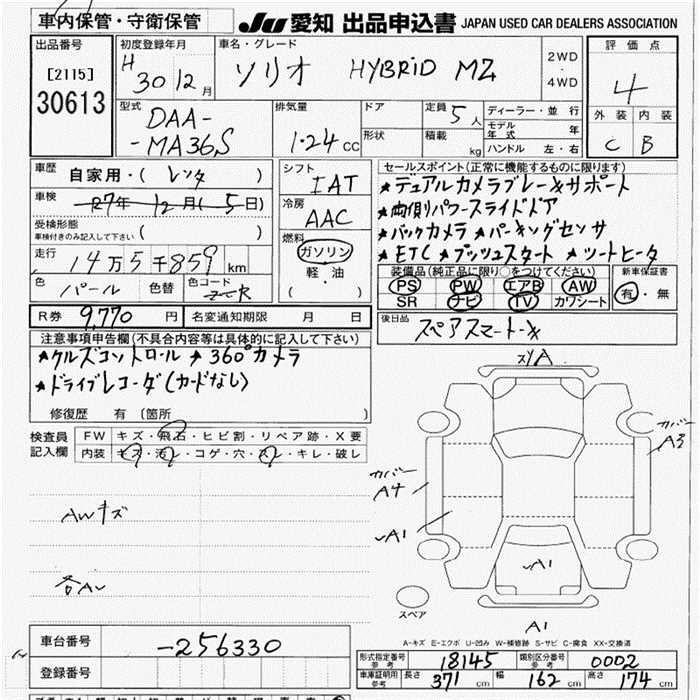 車内保管・守衛保管
JU 愛知 出品申込書 JAPAN USED CAR DEALERS ASSOCIATION
出品番号
[2115]
30613
初度登録年月
H 30 12 月
車名・グレード
ソリオ HYBRID MZ
2WD
・
4WD
評価点
4
外装 内装
C B
型式
DAA-
-MA36S
排気量
1.24 CC
ドア
形状
定員 5 人
積載 kg
ディーラー・並行
モデル年式 年
ハンドル 左・右
車歴
自家用・( レンタ )
車検
R7年 12月(5日)
受検形態
車検付きのみ記入して下さい ( )
走行
14万5千859 km
色
パール
色替
色コード
ZCR
シフト
IAT
冷房
AAC
燃料
ガソリン
軽・油
( )
セールスポイント(正常に機能するものに限ります)
★デュアルカメラブレーキサポート
★両側パワースライドドア
★バックカメラ ★パーキングセンサ
★ETC ★プッシュスタート ★シートヒータ
装備品(純正品に限り○をつけてください)
PS PW エアB AW
SR ナビ TV カワシート
新車保証書
有・無
R券 9,770 円
名変通知期限 月 日
後日品
スペアスマートキー
注意事項申告欄(不具合内容等は具体的に記入して下さい)
★クルーズコントロール ★360°カメラ
★ドライブレコーダ(カードなし)
修復歴 有(箇所 )
検査員記入欄
FW キズ・飛石・ヒビ割・リペア跡・X要
内装 キズ・汚レ・コゲ・穴・スレ・キレ・破レ
AWキズ
カバー
A3
カバー
A4
A1
A1
A1
スペア
A-キズ E-エクボ U-凹み W-補修跡 S-サビ C-腐食 XX-交換済
車台番号
-256330
登録番号
形式指定番号 参考 18145
類別区分番号 参考 0002
車庫証明用 参考 長さ 371 cm 幅 162 cm 高さ 174 cm